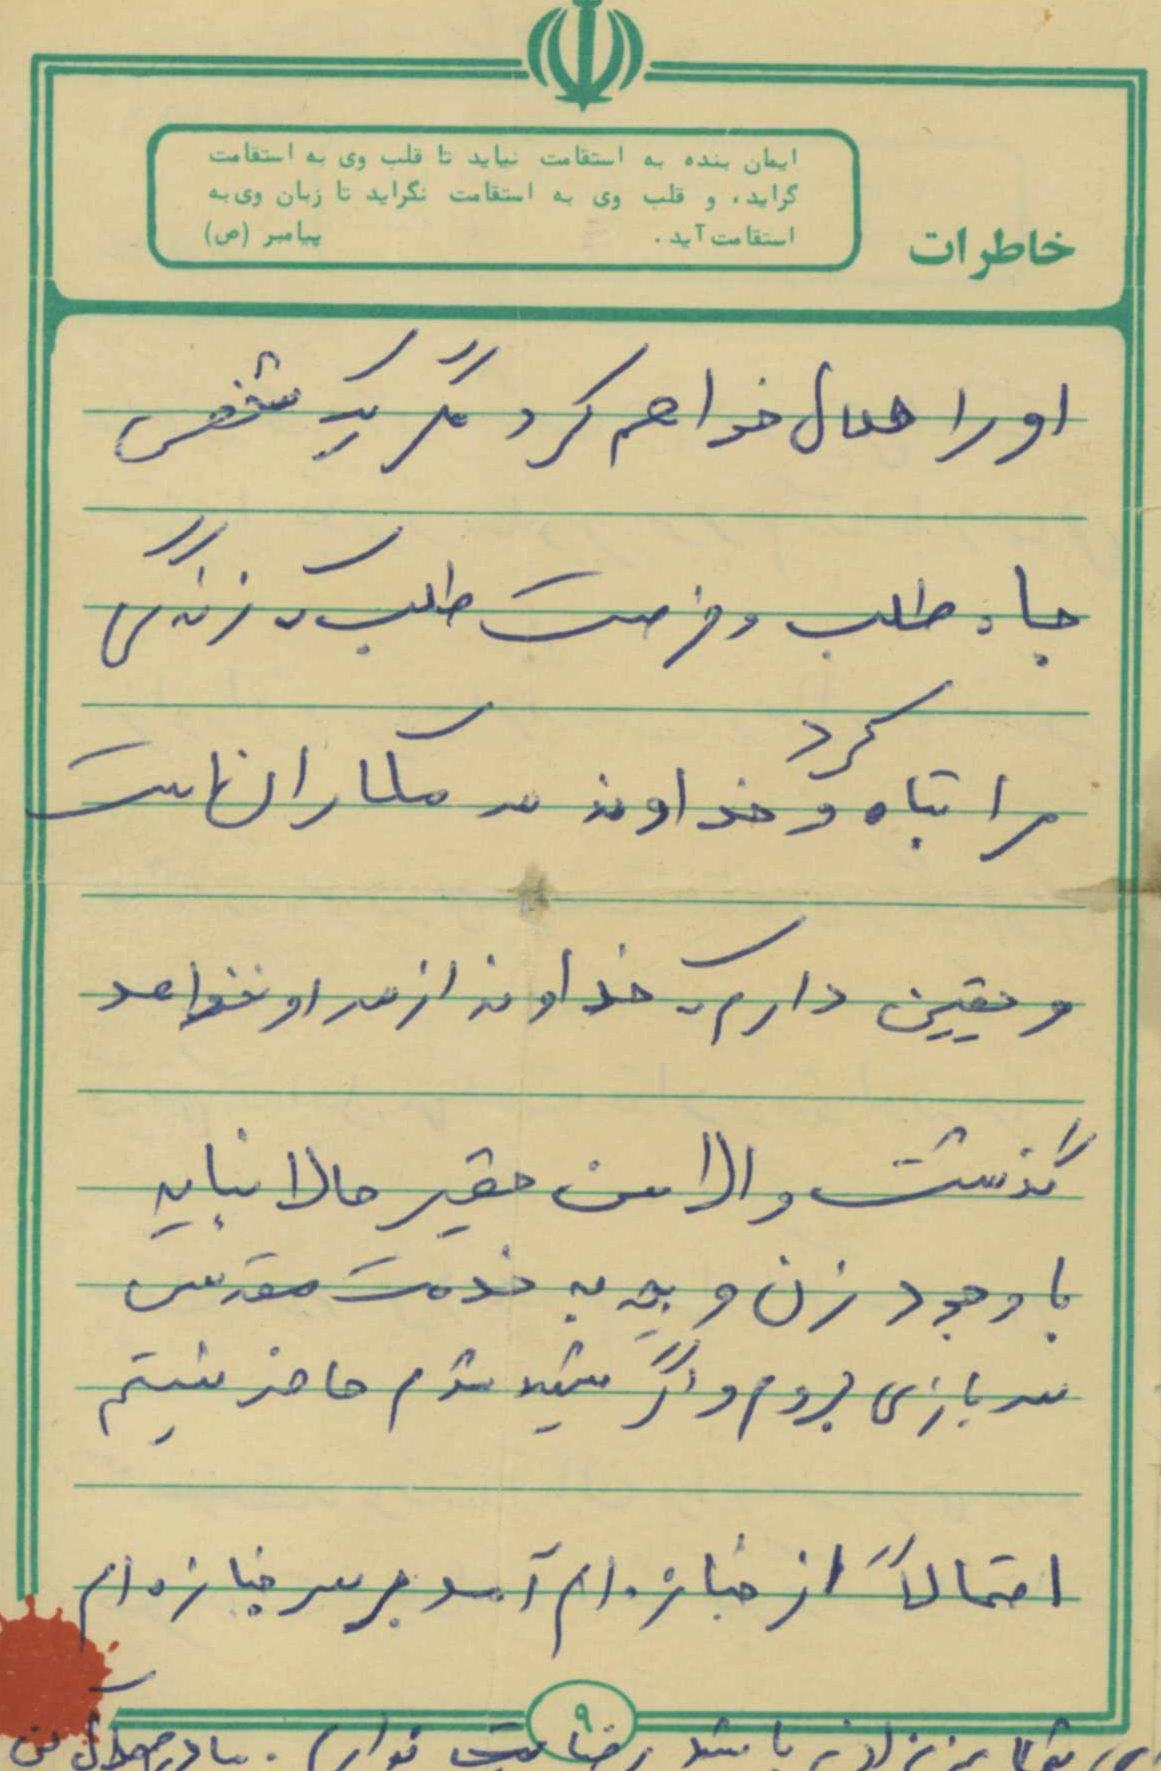 ایمان بنده به استقامت نیاید تا قلب وی به استقامت
گراید، و قلب وی به استقامت نگراید تا زبان وی به
استقامت آید. پیامبر (ص)
خاطرات
او را حلال خواهم کرد مگر یک شخص
جاه طلب و فرصت طلب که زندگی
مرا تباه کرد و خداوند سر مکاران است
و یقین دارم که خداوند از سر او نخواهد
گذشت والا من حقیر حالا نباید
با وجود زن و بچه به خدمت مقدس
سربازی بروم و اگر شهید شدم حاضر نیستم
احتمالاً از جنازه ام آمد بر سر جنازه ام
۹
باشد رضایت ندارم. مادر